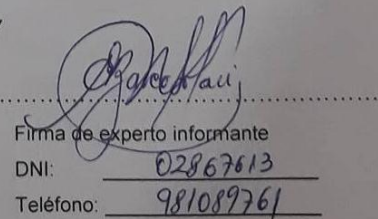 Firma de experto informante
DNI: 02867613
Teléfono: 981089761